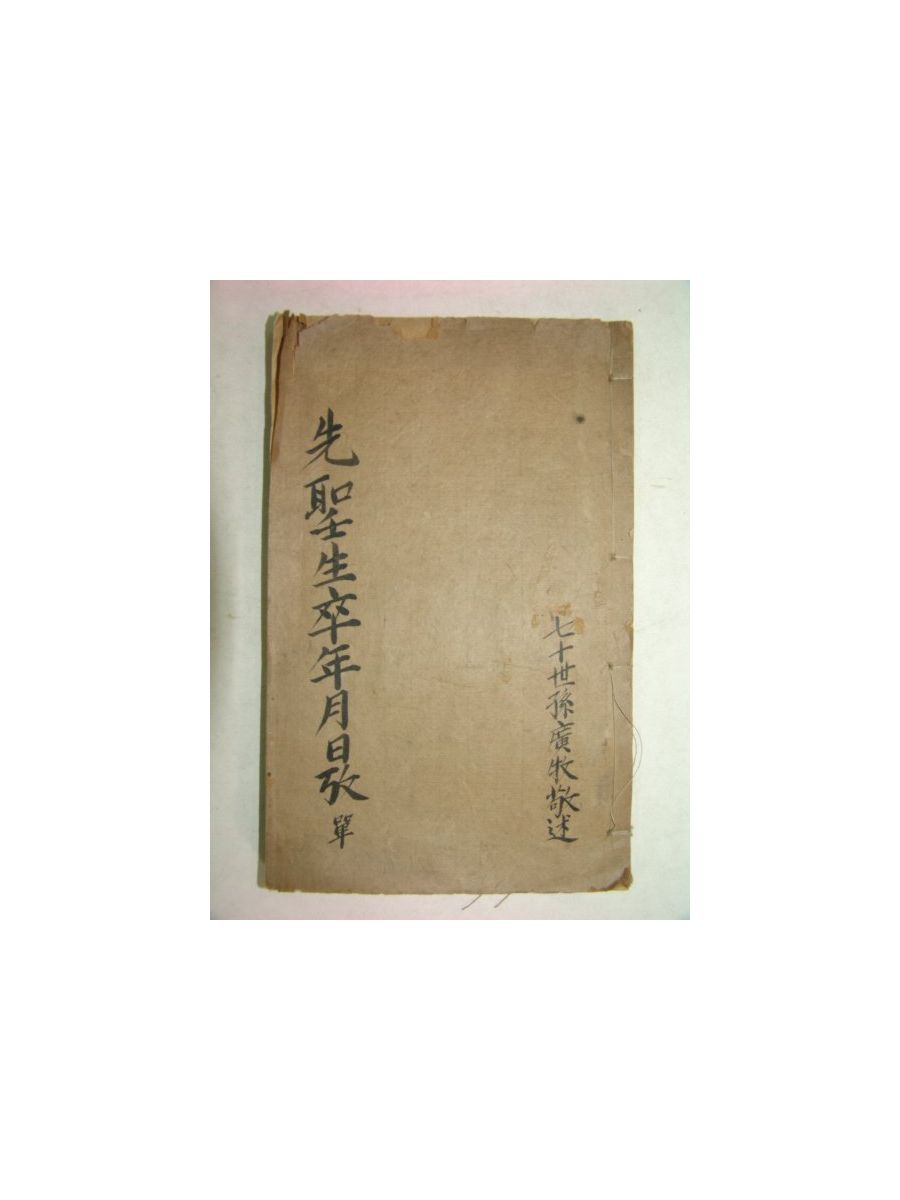 七十世孫廣牧敬述
先聖生卒年月日攷 單